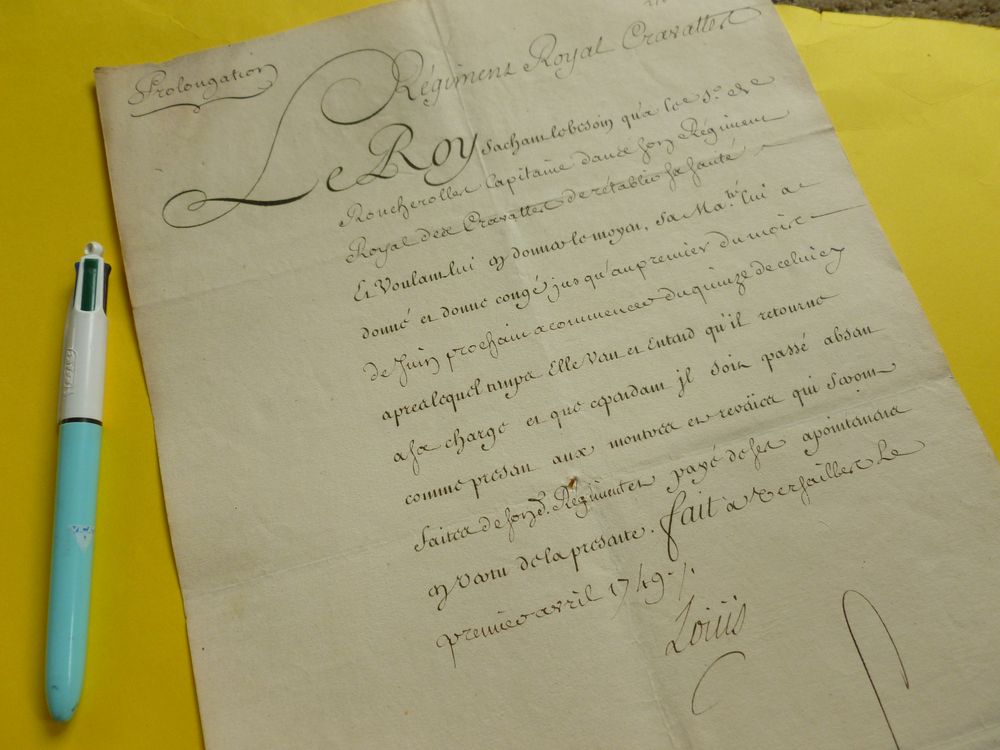 Prolongation
Régiment Royal Cravattes
Le Roy sachant le besoin qu'a le sr. de
Roncherolles Capitaine dans son Régiment
Royal des Cravattes de rétablir sa santé
Et Voulant lui en donner le moyen, sa Mate. lui a
donné et donne congé jusqu'au premier du mois
de Juin prochain a commencer du quinze de celuicy
apres lequel temps Elle Veut et Entend qu'il retourne
a sa charge et que cependant jl soit passé absent
comme present aux montres et reveües qui seront
faites de sond. Régiment et payé de ses apointemens
en Vertu de la presente. fait à Versailles Le
premier avril 1749./.
Loüis